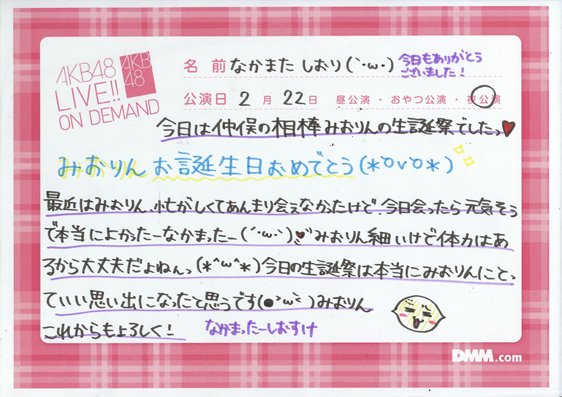 AKB48
LIVE!!
ON DEMAND
AKB
48
名 前 なかまた しおり (`･ω･)
今日もありがとう
ございました!
公演日 2 月 22 日 昼公演・おやつ公演・夜公演
今日は仲俣の相棒みおりんの生誕祭でしたっ♥
みおりん お誕生日おめでとう(*ºvº*)
最近はみおりん、忙がしくてあんまり会えなかったけど、今日会ったら元気そう
で本当によかったーなかまったー(´･ω･`)♥みおりん細いけど体力はあ
るから大丈夫だよねんっ(*^ω^*)今日の生誕祭は本当にみおりんにとっ
ていい思い出になったと思うです(●>ω<)みおりん
これからもよろしく!
なかまったーしおすけ
DMM.com